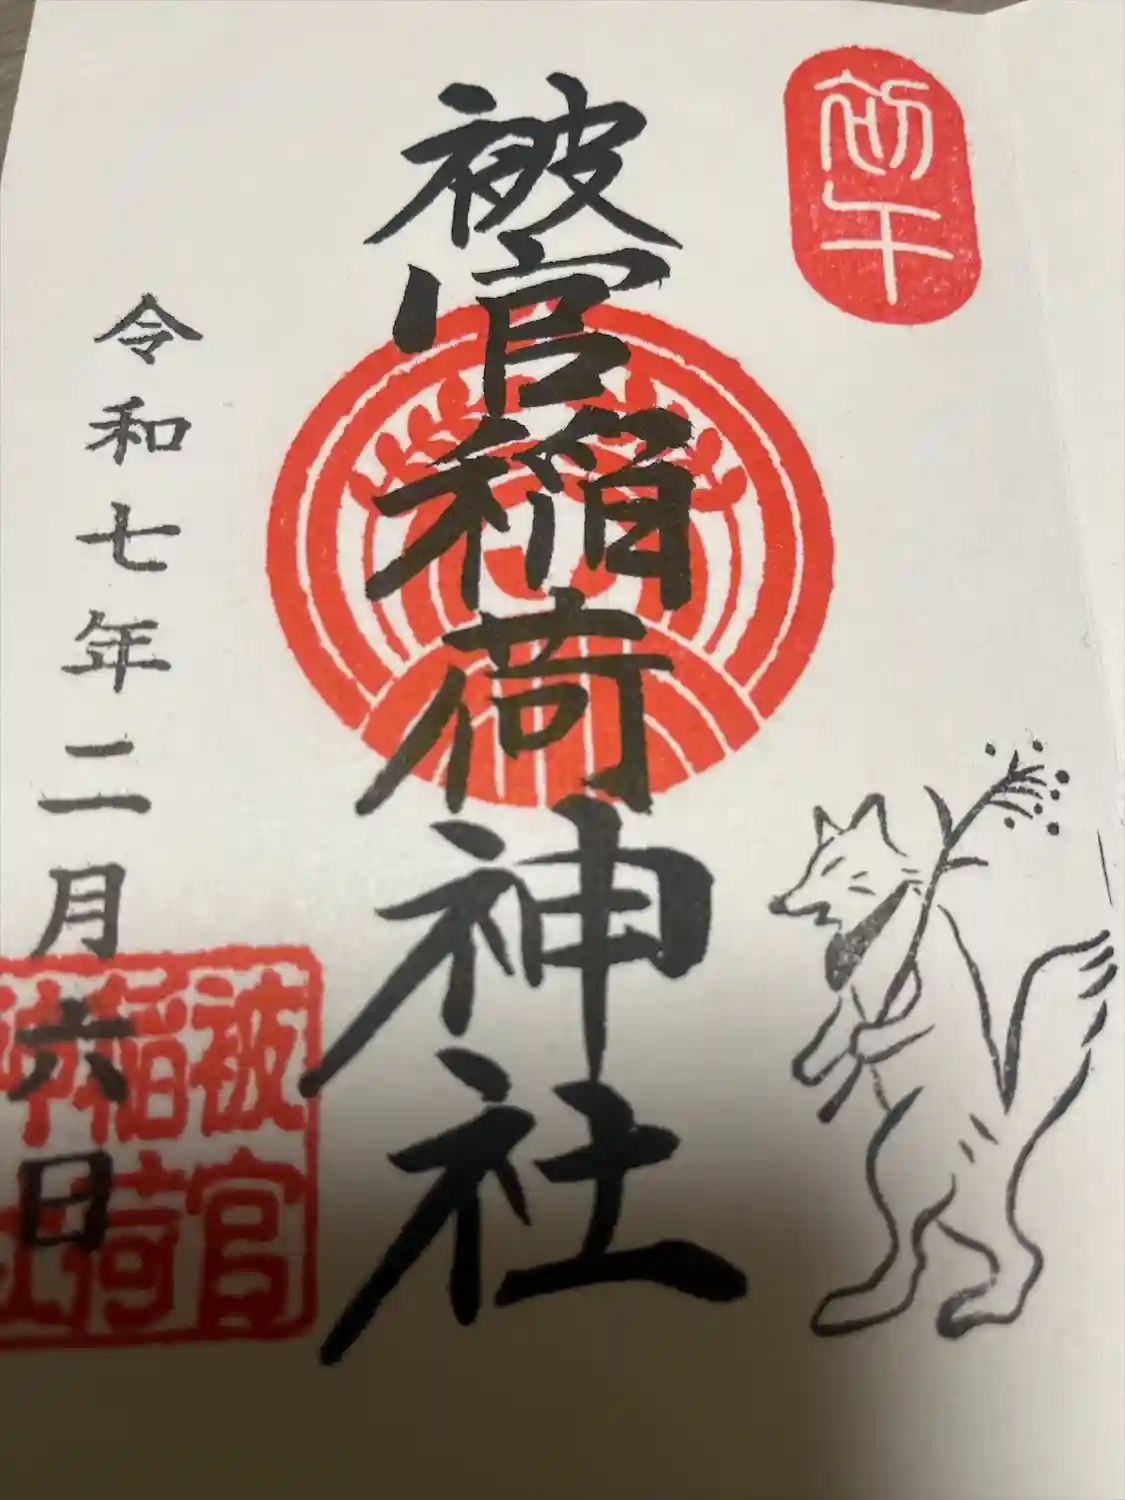 初午
被官稲荷神社
令和七年二月六日
被官
稲荷
神社